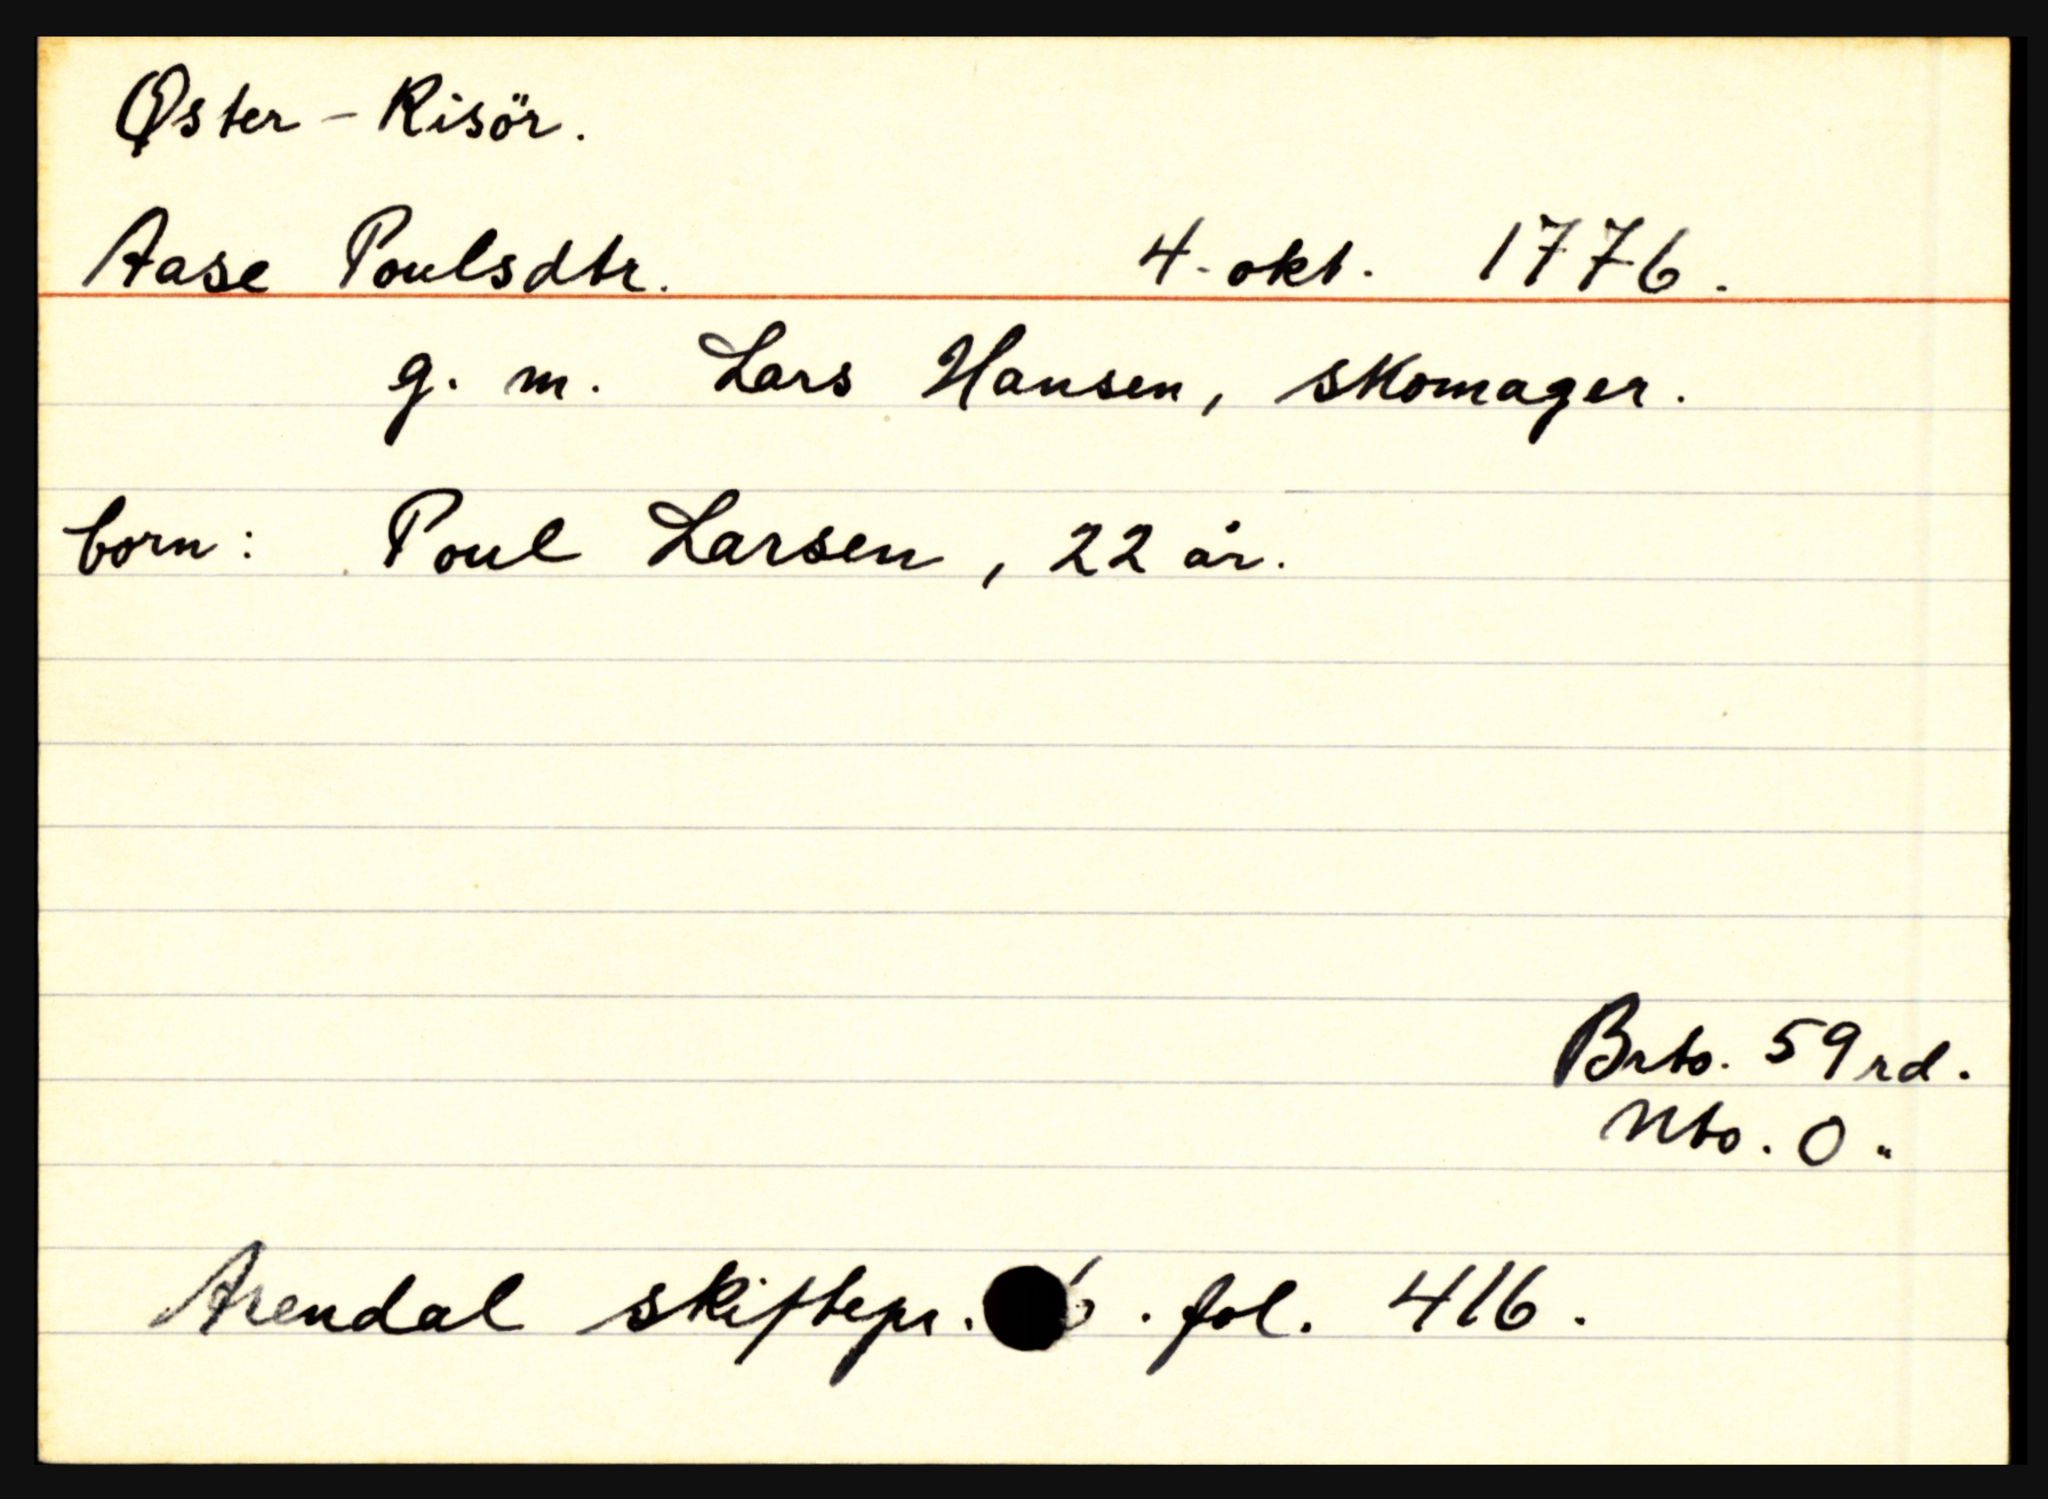 Øster - Risör.
Aase Poulsdtr. 4. okt. 1776.
g. m. Lars Hansen, skomager.
born: Poul Larsen, 22 år.
Brto. 59 rd.
Nto. 0 "
Arendal skiftepr. 6. fol. 416.